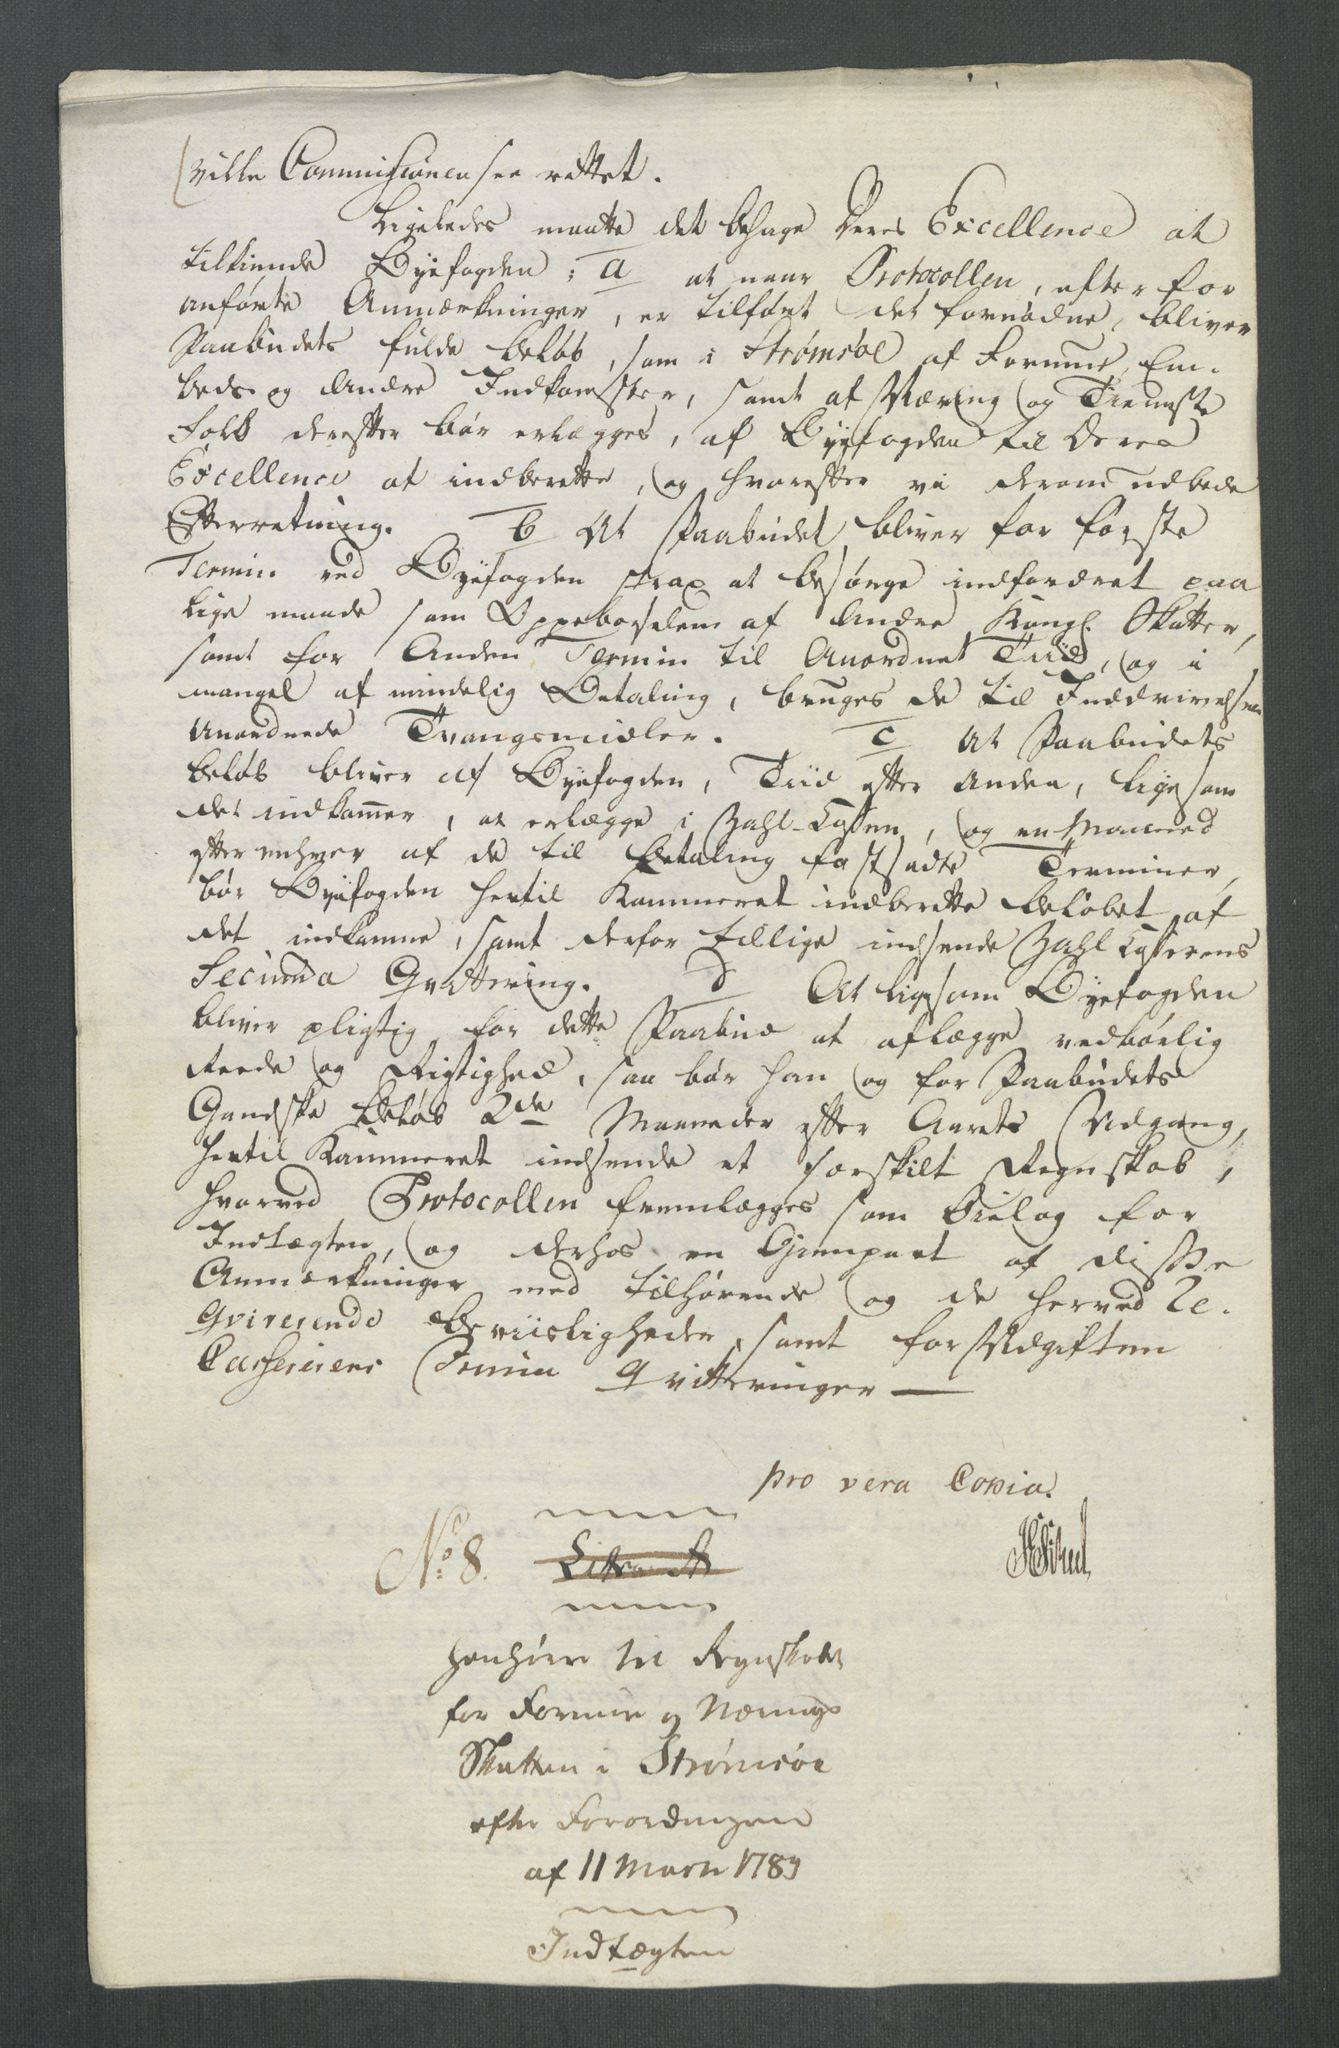 ville Commissionen see rettet.
Ligeledes maatte det behage Deres Excellence at
tilkiende Byefogden: a at naar Protocollen, efter for
anførte Anmærkninger, er tilført det fornødne, bliver
Paabudets fulde Beløb, som i Strømsøe af Formue, Em-
beds og andre Indkomster, samt af Næring og Tieneste
Folk derefter bør erlægges, af Byefogden til Deres
Excellence at indberette, og hvorefter vi derom udbede
Efterretning. b At Paabudet bliver for første
Termin ved Byefogden strax at besørge indfordret paa
lige maade som Oppebørselen af andre Kongl. Skatter,
samt for Anden Termin til Anordnet Tiid, og i
mangel af mindelig Betaling, bruges de til Inddrivelsen
anordnede Tvangsmidler. c At Paabudets
Beløb bliver af Byefogden, Tiid efter anden, ligesom
det indkommer, at erlægge i Zahl-Cassen, og en Maaned
efter enhver af de til Betaling fastsadte Terminer,
bør Byefogden hertil Kammeret indberette Beløbet af
det indkomne, samt derfor tillige indsende Zahl Casserens
Secunda Qvittering. d At ligesom Byefogden
bliver pligtig for dette Paabud at aflægge vedbørlig
Reede og Rigtighed, saa bør han og for Paabudets
Gandske Beløb 2de Maaneder efter Aarets Udgang,
hertil Kammeret indsende et særskilt Regnskab,
hvorved Protocollen fremlægges som Bielag for
Indtægten, og derhos en Gienpart af disse
Anmærkninger med tilhørende og de herved Re-
qvirerende Beviisligheder, samt for Udgiften
Casserens Prima Qvitteringer
pro vera Copia.
No. 8. Littr. A
Henhører til Regnskabet
for Formue og Nærings
Skatten i Strømsøe
efter Forordningen
af 11 Marti 1789
Indtægten